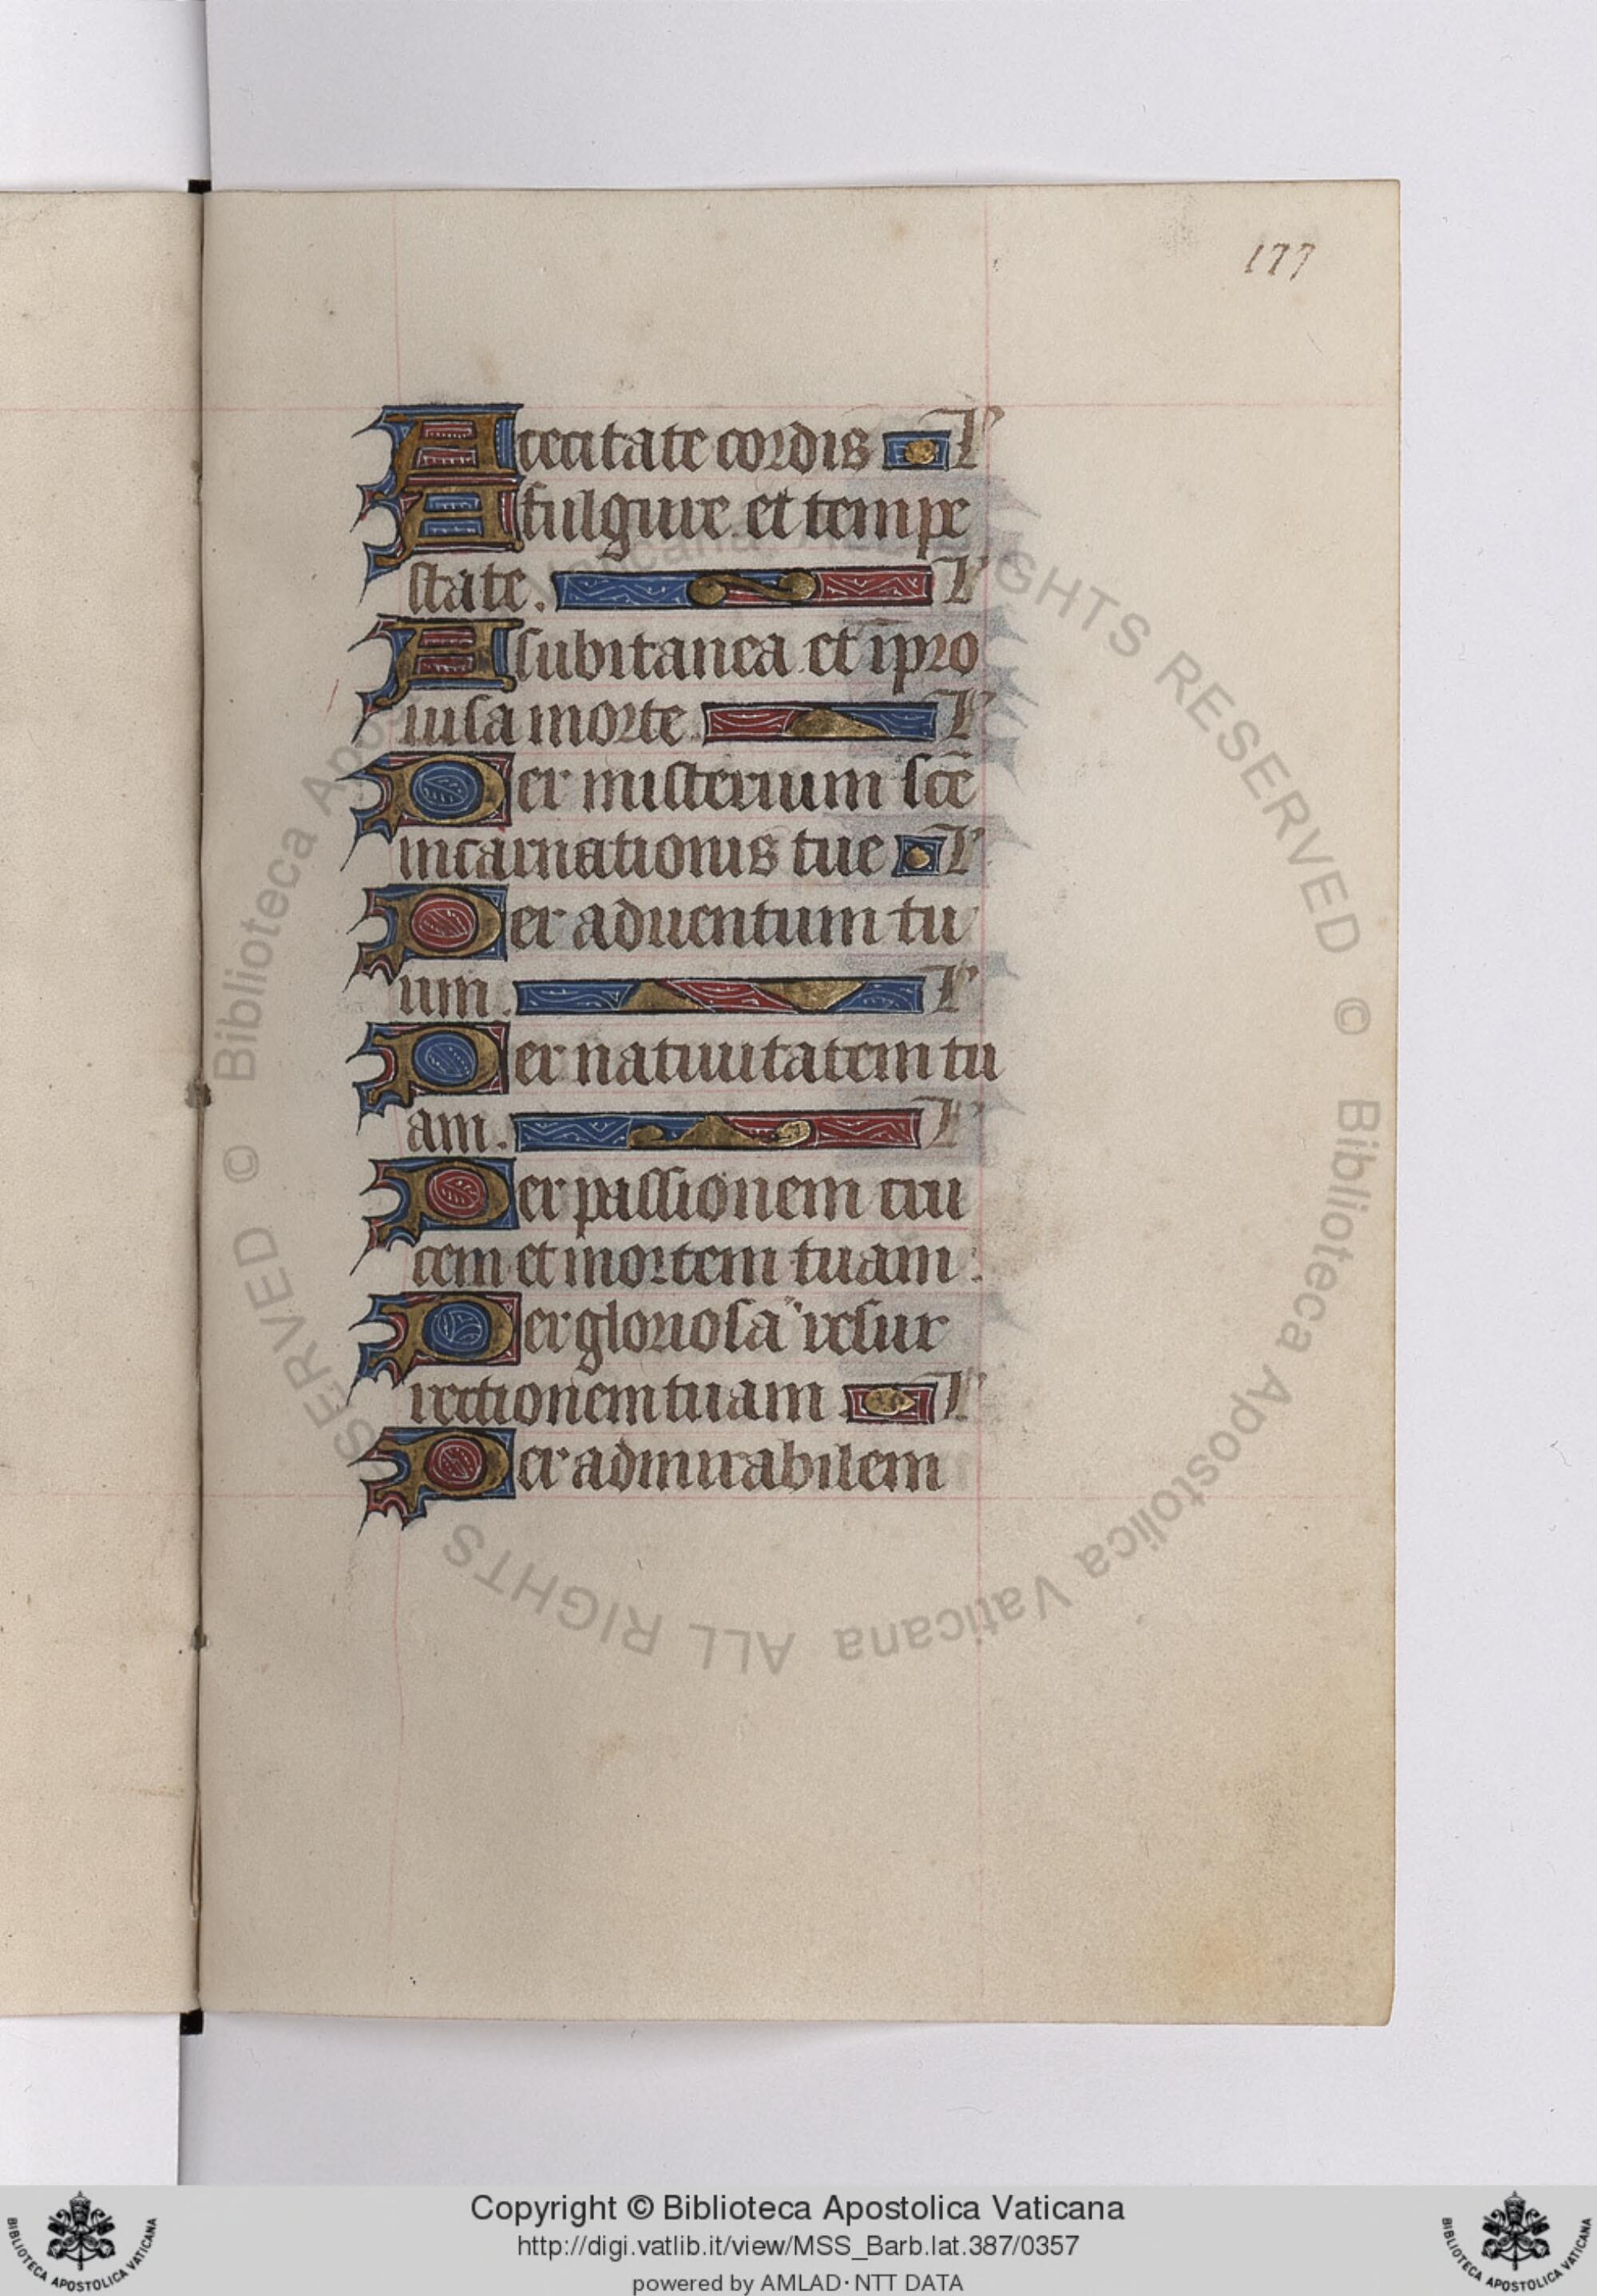 177
A cecitate cordis L
A fulgure et tempe
state. L
A subitanea et īpro
uisa morte L
Per misterium sc̄e
incarnationis tue L
Per aduentum tu
um. L
Per natiuitatem tu
am. L
Per passionem cru
cem et mortem tuam.
Per gloriosā resur
rectionem tuam L
Per admirabilem
© Biblioteca Apostolica Vaticana ALL RIGHTS RESERVED © Biblioteca Apostolica Vaticana ALL RIGHTS RESERVED
Copyright © Biblioteca Apostolica Vaticana
http://digi.vatlib.it/view/MSS_Barb.lat.387/0357
powered by AMLAD·NTT DATA
BIBLIOTECA APOSTOLICA VATICANA
BIBLIOTECA APOSTOLICA VATICANA